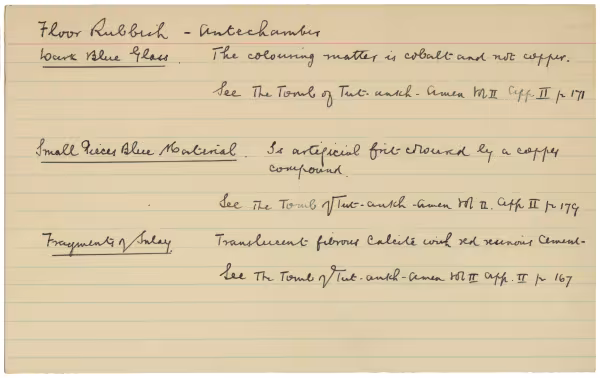 Floor Rubbish - Antechamber
Dark Blue Glass. The colouring matter is cobalt and not copper.
See The Tomb of Tut-ankh-Amen Vol II App II p 171
Small Pieces Blue Material. Is artificial frit coloured by a copper
compound.
See The Tomb of Tut-ankh-Amen Vol II. App II p 179
Fragments of Inlay Translucent fibrous calcite with red resinous cement-
See The Tomb of Tut-ankh-Amen Vol II App. II p 167